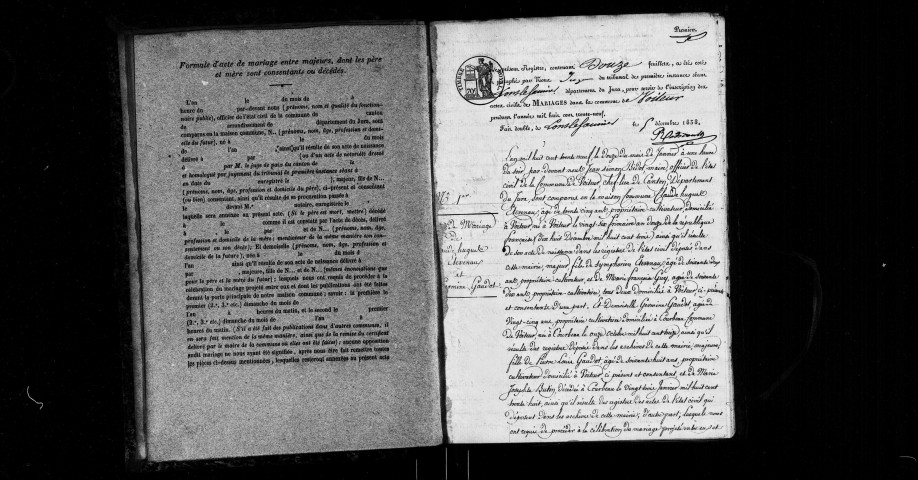 Formule d'acte de mariage entre majeurs, dont les père
et mère sont consentants ou décédés.
L'an le du mois de à
heure du par-devant nous (prénoms, nom et qualité du fonction-
naire public), officier de l'état civil de la commune de canton
de arrondissement de département du Jura, sont
comparus en la maison commune, N... (prénoms, nom, âge, profession et domi-
cile du futur), né à le du mois
de l'an ainsi qu'il résulte de son acte de naissance
délivré à par (ou d'un acte de notoriété dressé
à par M. le juge de paix du canton de le
et homologué par jugement du tribunal de première instance séant à
en date du enregistré le ), majeur, fils de N...
(prénoms, nom, âge, profession et domicile du père), ci-présent et consentant
(ou bien) consentant, ainsi qu'il résulte de sa procuration passée à
le devant M.e notaire, enregistrée le
laquelle sera annexée au présent acte. (Si le père est mort, mettre) décédé
à le comme il est constaté par l'acte de décès, délivré
à le par et de N... (prénoms, nom, âge,
profession et domicile de la mère; mentionner de la même manière son con-
sentement ou son décès); Et demoiselle (prénoms, nom, âge, profession et
domicile de la future), née à le du mois
de l'an ainsi qu'il résulte de son acte de naissance délivré à
par , majeure, fille de N... et de N... (mêmes énonciations que
pour le père et la mère du futur); lesquels nous ont requis de procéder à la
célébration du mariage projeté entre eux et dont les publications ont été faites
devant la porte principale de notre maison commune; savoir: la première le
premier (2.e, 3.e etc.) dimanche du mois de
à heures du matin, et la second le premier
(2.e, 3.e etc.) dimanche du mois de l'an à
heures du matin. (S'il a été fait des publications dans d'autres communes, il
en sera fait mention de la même manière, ainsi que de la remise du certificat
délivré par le maire de la commune où elles ont été faites); aucune opposition
audit mariage ne nous ayant été signifiée, après nous être fait remettre toutes
les pièces ci-dessus mentionnées, lesquelles resteront annexées au présent acte
Premier.
présent Registre, contenant Douze feuillets, a été coté
paraphé par Nous Juge du tribunal de première instance séant
Lons le Saunier département du Jura, pour servir à l'inscription des
actes civils de MARIAGES dans la commune de Voiteur
pendant l'année mil huit cent trente-neuf.
Fait double, à Lons le Saunier le 5 décembre 1838.
N.o 1.er
Mariage
de
Claude auguste
Etevenau
et
Germine Gaudot
L'an mil huit cent trente neuf le douze du mois de Janvier à une heure
du soir, par devant nous Jean Simon Bidot maire, officier de l'état
civil de la commune de Voiteur chef lieu de Canton, Département
du Jura, sont comparus en la maison commune Claude auguste
Etevenau, âgé de trente cinq ans, propriétaire cultivateur, domicilié
à Voiteur, né à Voiteur le vingt six frimaire an douze de la république
française (dix huit Décembre mil huit cent trois) ainsi qu'il résulte
de son acte de naissance dans les registres de l'état civil déposés dans
cette mairie, majeur, fils de Symphorien Etevenau, âgé de soixante
ans, propriétaire-cultivateur, et de Marie françoise Guy, âgée de soixante
dix ans, propriétaire-cultivatrice, tous deux domiciliés à Voiteur, ci-présents
et consentants d'une part. Et Demoiselle Germine Gaudot, âgée de
Vingt-cinq ans, propriétaire cultivateur domiciliée à Courbeau commune
de Voiteur née à Courbeau le onze octobre mil huit cent treize, ainsi qu'il
résulte des registres déposés dans les archives de cette mairie, majeure,
fille de Pierre Louis Gaudot, âgé de soixante huit ans, propriétaire
cultivateur domicilié à Voiteur, ci présent et consentant, et de Marie
Josephte Buton décédée à Courbeau le vingt trois Janvier mil huit cent
trente huit, ainsi qu'il résulte des registres des actes de l'état civil qui
déposent dans les archives de cette mairie; d'autre part, lesquels nous
ont requis de procéder à la célébration du mariage projeté entre eux et